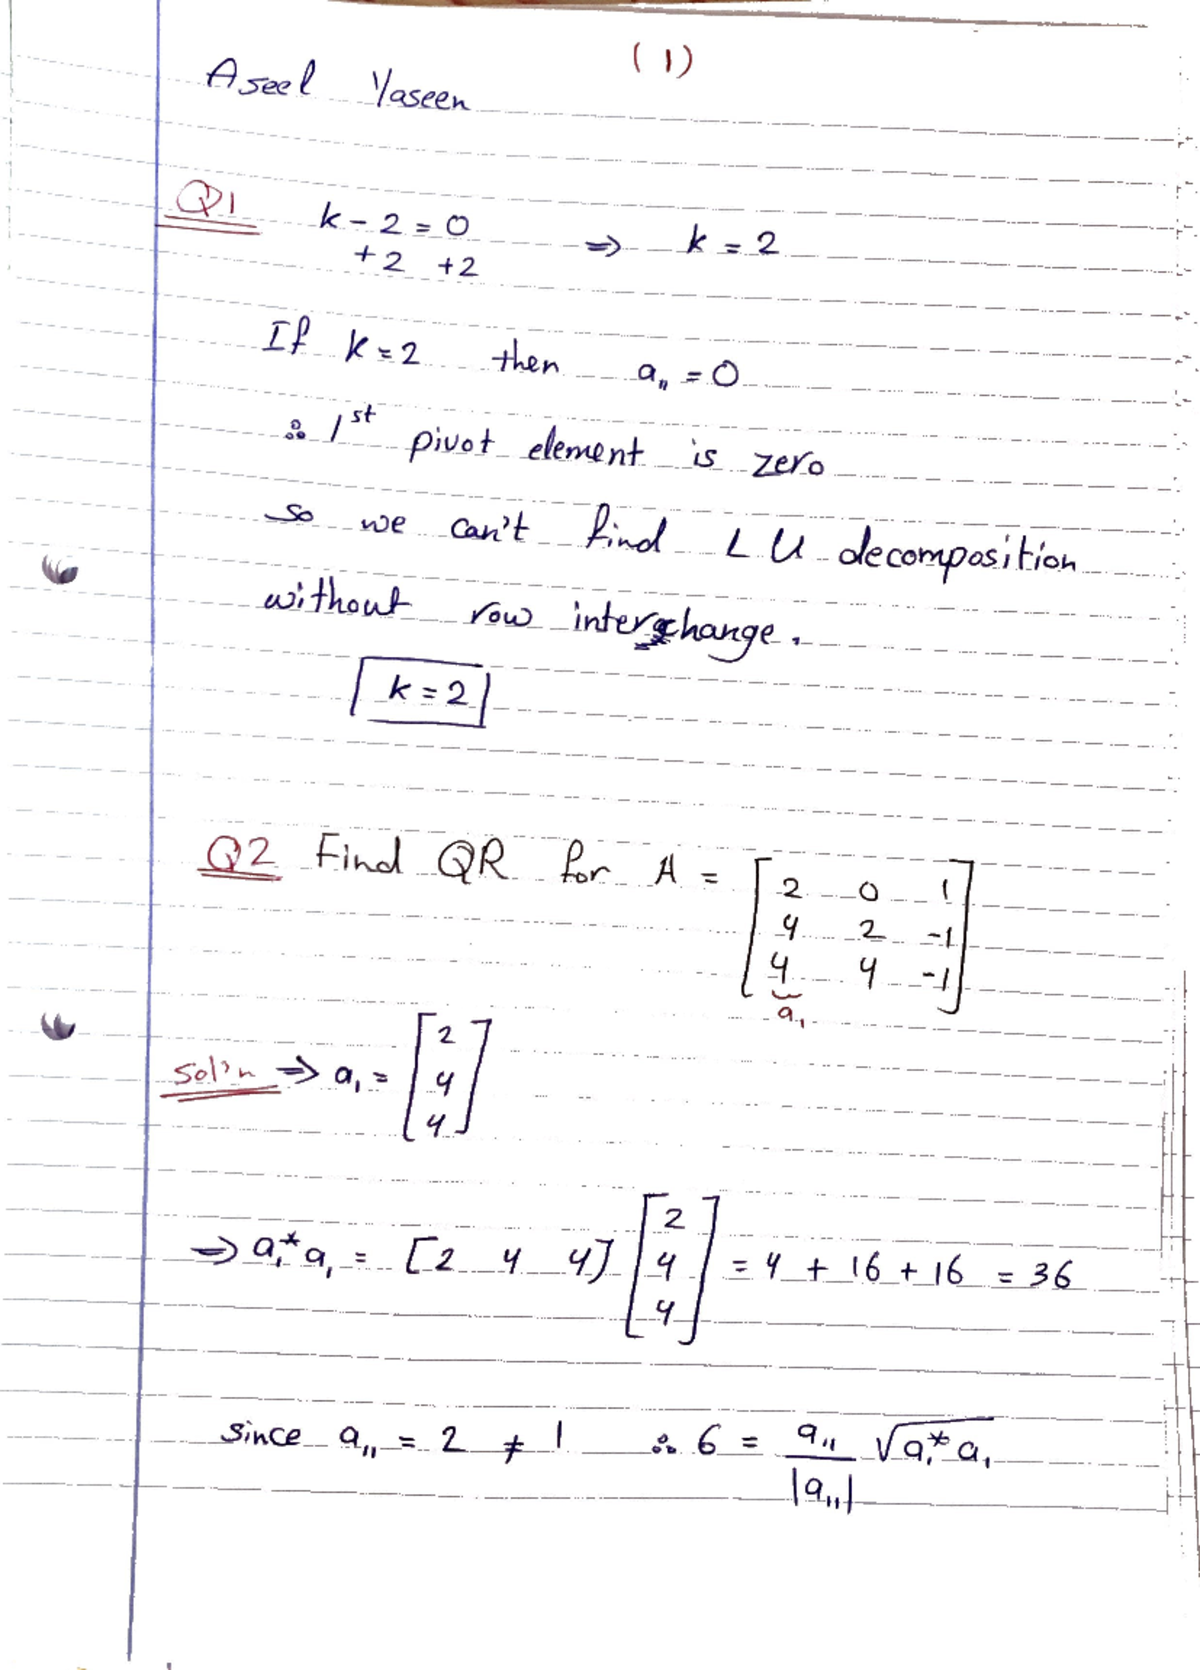 (1)
Aseel Yaseen
Q1 k - 2 = 0 ⇒ k = 2
+2 +2
If k = 2 then a₁₁ = 0
∴ 1st pivot element is zero
so we can't find LU decomposition
without row interchange.
k = 2
Q2 Find QR for A = [2 0 1
4 2 -1
4 4 -1]
a₁
Sol'n ⇒ a₁ = [2
4
4]
⇒ a₁* a₁ = [2 4 4] [2 4 4] = 4 + 16 + 16 = 36
since a₁₁ = 2 ≠ 1 ∴ 6 = a₁₁/|a₁₁| √a₁* a₁